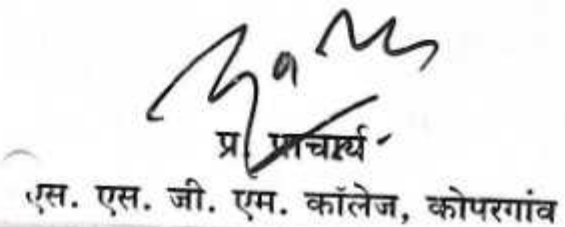 प्र. प्राचार्य
एस. एस. जी. एम. कॉलेज, कोपरगांव